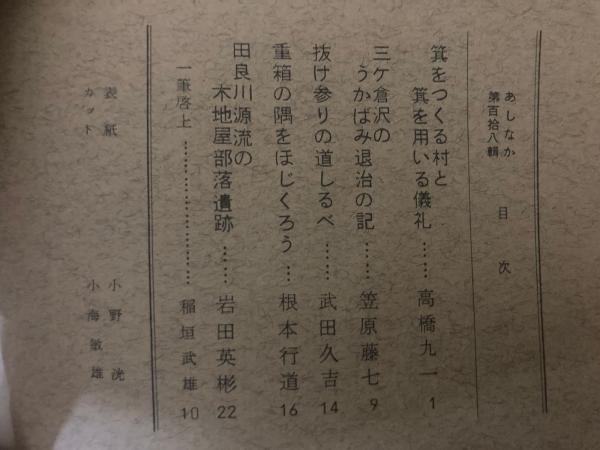 あしなか
第百拾八輯
目次
箕をつくる村と
箕を用いる儀礼 …… 高橋九一 1
三ケ倉沢の
うかばみ退治の記 …… 笠原藤七 9
抜け参りの道しるべ …… 武田久吉 14
重箱の隅をほじくろう … 根本行道 16
田良川源流の
木地屋部落遺跡 …… 岩田英彬 22
一筆啓上 ………………… 稲垣武雄 10
表紙 小野洸
カット 小海敏雄